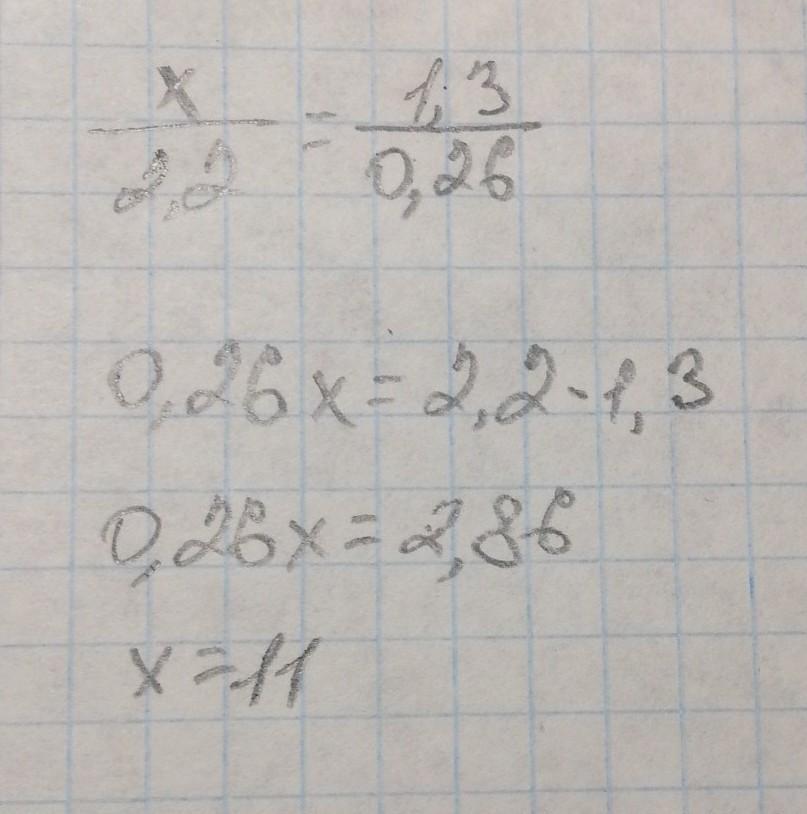 x/2,2 = 1,3/0,26
0,26x = 2,2 · 1,3
0,26x = 2,86
x = 11